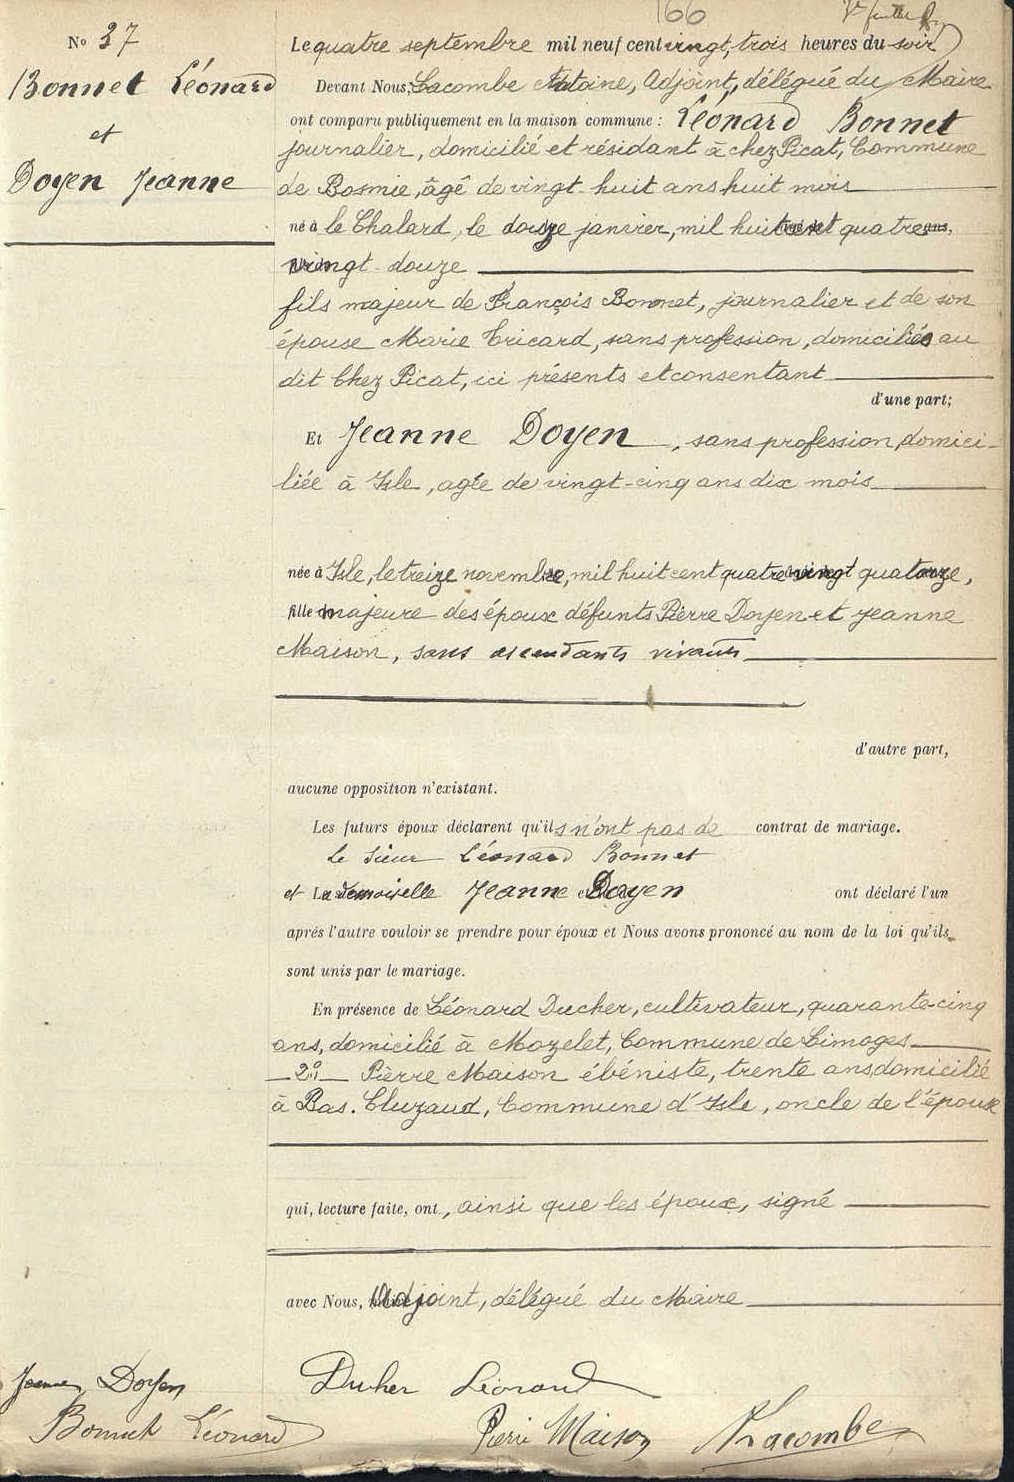 166
Nº 37
Bonnet Léonard
et
Doyen Jeanne
Le quatre septembre mil neuf cent vingt, trois heures du soir
Devant Nous, Lacombe Antoine, Adjoint, délégué du Maire
ont comparu publiquement en la maison commune : Léonard Bonnet
journalier, domicilié et résidant à chez Picat, Commune
de Bosmie, âgé de vingt-huit ans huit mois
né à le Chalard, le douze janvier, mil huit cent quatre
vingt-douze
fils majeur de François Bonnet, journalier et de son
épouse Marie Tricard, sans profession, domiciliés au
dit Chez Picat, ici présents et consentant
d'une part;
Et Jeanne Doyen, sans profession, domici-
liée à Isle, agée de vingt-cinq ans dix mois
née à Isle, le treize novembre, mil huit cent quatre vingt quatorze,
fille majeure des époux défunts Pierre Doyen et Jeanne
Maison, sans ascendants vivants
d'autre part,
aucune opposition n'existant.
Les futurs époux déclarent qu'ils n'ont pas de contrat de mariage.
Le sieur Léonard Bonnet
et La demoiselle Jeanne Doyen ont déclaré l'un
après l'autre vouloir se prendre pour époux et Nous avons prononcé au nom de la loi qu'ils
sont unis par le mariage.
En présence de Léonard Ducher, cultivateur, quarante-cinq
ans, domicilié à Mozelet, Commune de Limoges
2º Pierre Maison ébéniste, trente ans, domicilié
à Bas. Cluzaud, Commune d'Isle, oncle de l'épouse
qui, lecture faite, ont, ainsi que les époux, signé
avec Nous, Adjoint, délégué du Maire
Jeanne Doyen
Duher Léonard
Bonnet Léonard
Pierre Maison
Lacombe